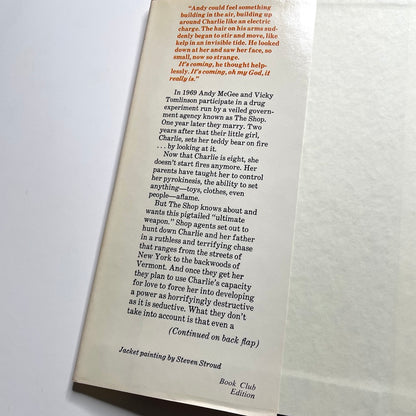 "Andy could feel something
building in the air, building up
around Charlie like an electric
charge. The hair on his arms sud-
denly began to stir and move, like
kelp in an invisible tide. He looked
down at her and saw her face, so
small, now so strange.
It's coming, he thought help-
lessly. It's coming, oh my God, it
really is."
In 1969 Andy McGee and Vicky
Tomlinson participate in a drug
experiment run by a veiled govern-
ment agency known as The Shop.
One year later they marry. Two
years after that their little girl,
Charlie, sets her teddy bear on fire
. . . by looking at it.
Now that Charlie is eight, she
doesn't start fires anymore. Her
parents have taught her to control
her pyrokinesis, the ability to set
anything—toys, clothes, even
people—aflame.
But The Shop knows about and
wants this pigtailed "ultimate
weapon." Shop agents set out to
hunt down Charlie and her father
in a ruthless and terrifying chase
that ranges from the streets of
New York to the backwoods of
Vermont. And once they get her
they plan to use Charlie's capacity
for love to force her into developing
a power as horrifyingly destructive
as it is seductive. What they don't
take into account is that even a
(Continued on back flap)
Jacket painting by Steven Stroud
Book Club
Edition